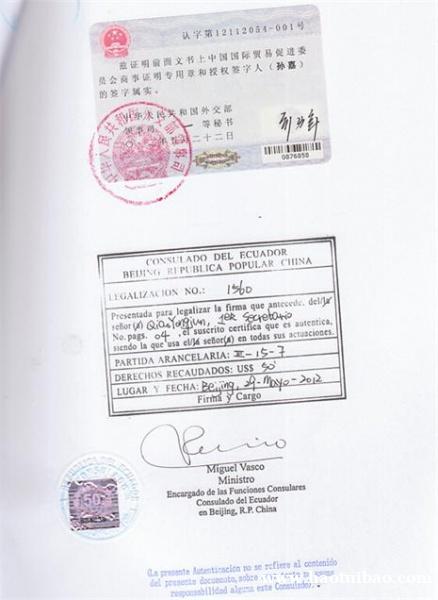 认字第12112054-001号
兹证明前面文书上中国国际贸易促进委
员会商事证明专用章和授权签字人（孙嘉）
的签字属实。
中华人民共和国外交部
领事司 一等秘书
二十二日
0876850
CONSULADO DEL ECUADOR
BEIJING REPUBLICA POPULAR CHINA
LEGALIZACION NO.: 1560
Presentada para legalizar la firma que antecede, del/la
señor(a) Qiao Yongjun, 1er Secretario
No. pags. 04, el suscrito certifica que es autentica,
siendo la que usa el/la señor(a) en todas sus actuaciones.
PARTIDA ARANCELARIA: III-15-7
DERECHOS RECAUDADOS: US$ 50
LUGAR Y FECHA: Beijing, 29-Mayo-2012
Firma y Cargo
Miguel Vasco
Ministro
Encargado de las Funciones Consulares
Consulado del Ecuador
en Beijing, R.P. China
50
(La presente Autenticación no se refiere al contenido
del presente documento, sobre
responsabilidad alguna este Consulado)